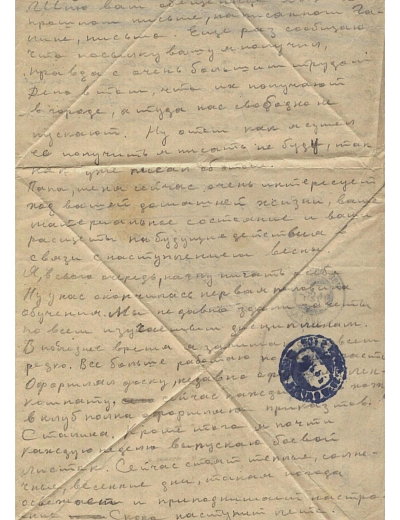 прошлом письме, написанном Га-
не, письмо. Еще раз сообщаю
что посылку вашу я получил,
правда с очень большим трудом.
Дело в том, что их получают
в городе, а туда нас свободно не
пускают. Ну о том как я сумел
ее получить я писать не буду, так
как уже писал об этом.
Папа, меня сейчас очень интересует
ход вашей домашней жизни, ваше
материальное состояние и ваши
расчеты на будущие действия в
связи с наступлением весны.
Я, в свою очередь, начну писать о себе.
Ну у нас окончилась первая половина
обучения. Мы недавно сдали зачеты
по всем изучаемым дисциплинам.
В последнее время я
резко. Все больше работаю по
Оформлял доску, недавно
комнату,
в клуб полка оформляю приказ тов.
Сталина, кроме того я почти
каждую неделю выпускаю боевой
листок. Сейчас стоят теплые, солне-
чные, весенние дни, такая погода
и приподнимает настро-
ение. Скоро наступит лето.